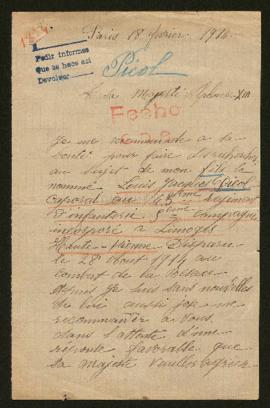 Paris 18 février 1916
Pedir informes
Que se hace así
Devolver
Picol
A Sa Majesté Alphonse XIII
Fecho
Je me recommande a sa
bonté pour faire des recherches
au sujet de mon fils le
nommé Louis Jacques Picol
caporal au 63ème Régiment
d'infanterie 8ème Compagnie
incorporé a Limoges
Haute-Vienne Disparu
le 28 Août 1914 au
combat de la
depuis je suis sans nouvelles
de lui aussi je me
recommande a vous
dans l'attente d'une
réponse favorable que
Sa majesté